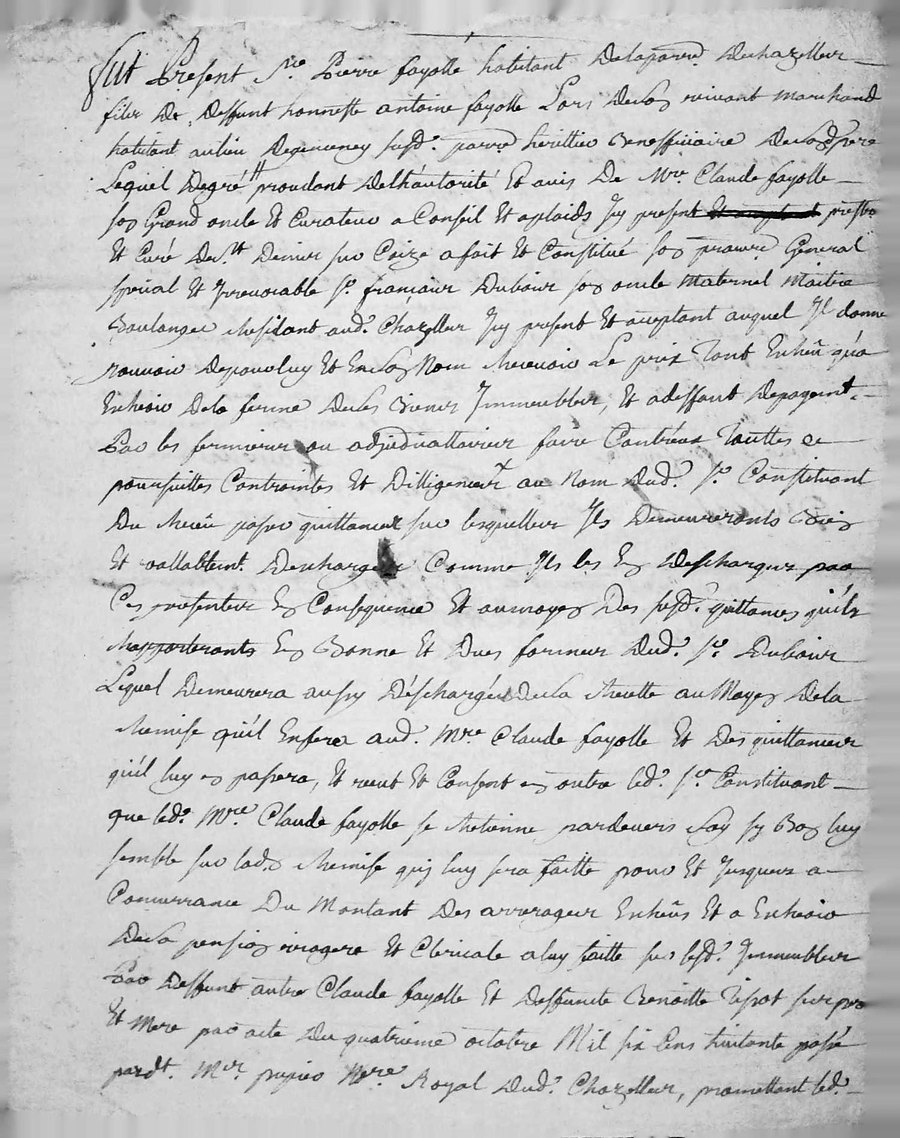 fut Present Sre. Pierre fayolle habitant Delaparre. Dechazelleur
filix De Deffunt honneste antoine fayolle Lors Deson vivant marchand
habitant aulieu susd. parre. herittier Benefficiaire Desond. pere
Lequel Degré procedant Delhautorité Et avis De Mre Claude fayolle
son Grand oncle Et Curateur a Conseil Et aplaids Jcy present prestre
Et Curé De St. Denier sur Coize a fait Et Constitué son procure. General
special Et Jrrevocable Sr. françoix Duboix son oncle Maternel Maitre
Boulanger Residant aud. Chazelleur Jcy present Et aceptant auquel Jl donne
pouvoir Depourluy Et Enson Nom Recevoir Le prix Tant Echeû qua
Echeoir Dela ferme Deses Biens Jmmeubleur, Et adeffaut Depayemt.
Par les fermieurs ou adjudicattaireur faire Contreux Touttes
poursuittes Contraintes Et Dilligenceur au Nom Dud. Sr. Constituant
Du Receu passer quittancer sur lesquelleur Jls Demeureronts Bien
Et vallablemt. Dechargeur Comme Jls les En Descharger par
Ces presenteur En Consequence Et aumoyen Des susd. quittances quils
Rapporteronts En Bonne Et Dues formeur Dud. Sr. Duboir
Lequel Demeurera aussy Deschargé Desa Recette au Moyen Dela
Remise qu'il Enfera aud. Mre Claude fayolle Et Des quittanceur
qu'il luy en passera, Et veut Et Consent en outre led. Sr. Constituant
que led. Mre. Claude fayolle se Retienne pardevers Soy sy Bon luy
semble sur lade Remise quy luy sera faitte pour Et Jusqueur a
Concurrance Du Montant Des arrerageur Echeûs Et a Echeoir
Desa pension viagere Et Clericale aluy faitte sur lesd. Jmmeubleur
Par Deffunt autre Claude fayolle Et Deffuncte Benoitte Tissot ses pere
Et Mere par acte Du quatrieme octobre Mil six Cens huitante passé
pardt. Me. Nore. Royal Dud. Chazelleur, promettant led.